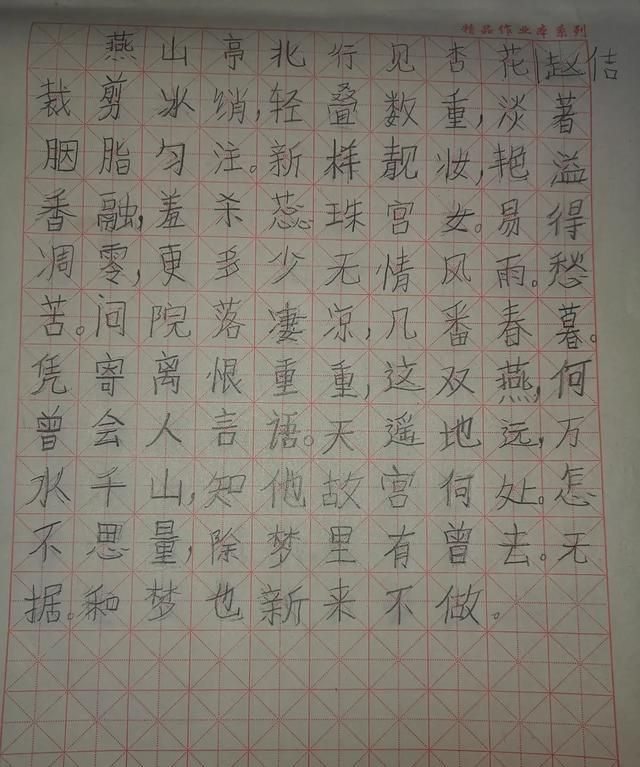 精品作业本系列
燕山亭北行见杏花|赵佶
裁剪冰绡,轻叠数重,淡著
胭脂匀注。新样靓妆,艳溢
香融,羞杀蕊珠宫女。易得
凋零,更多少无情风雨。愁
苦。问院落凄凉,几番春暮。
凭寄离恨重重,这双燕,何
曾会人言语。天遥地远,万
水千山,知他故宫何处。怎
不思量,除梦里有曾去。无
据。和梦也新来不做。